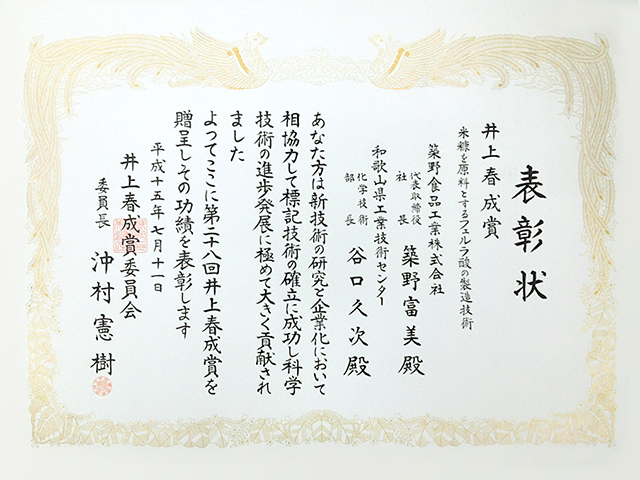 表彰状
井上春成賞
米糠を原料とするフェルラ酸の製造技術
築野食品工業株式会社
代表取締役
社長
築野富美殿
和歌山県工業技術センター
化学技術
部長
谷口久次殿
あなた方は新技術の研究と企業化において
相協力して標記技術の確立に成功し科学
技術の進歩発展に極めて大きく貢献され
ました
よってここに第二十八回井上春成賞を
贈呈しその功績を表彰します
平成十五年七月十一日
井上春成賞委員会
委員長
沖村憲樹